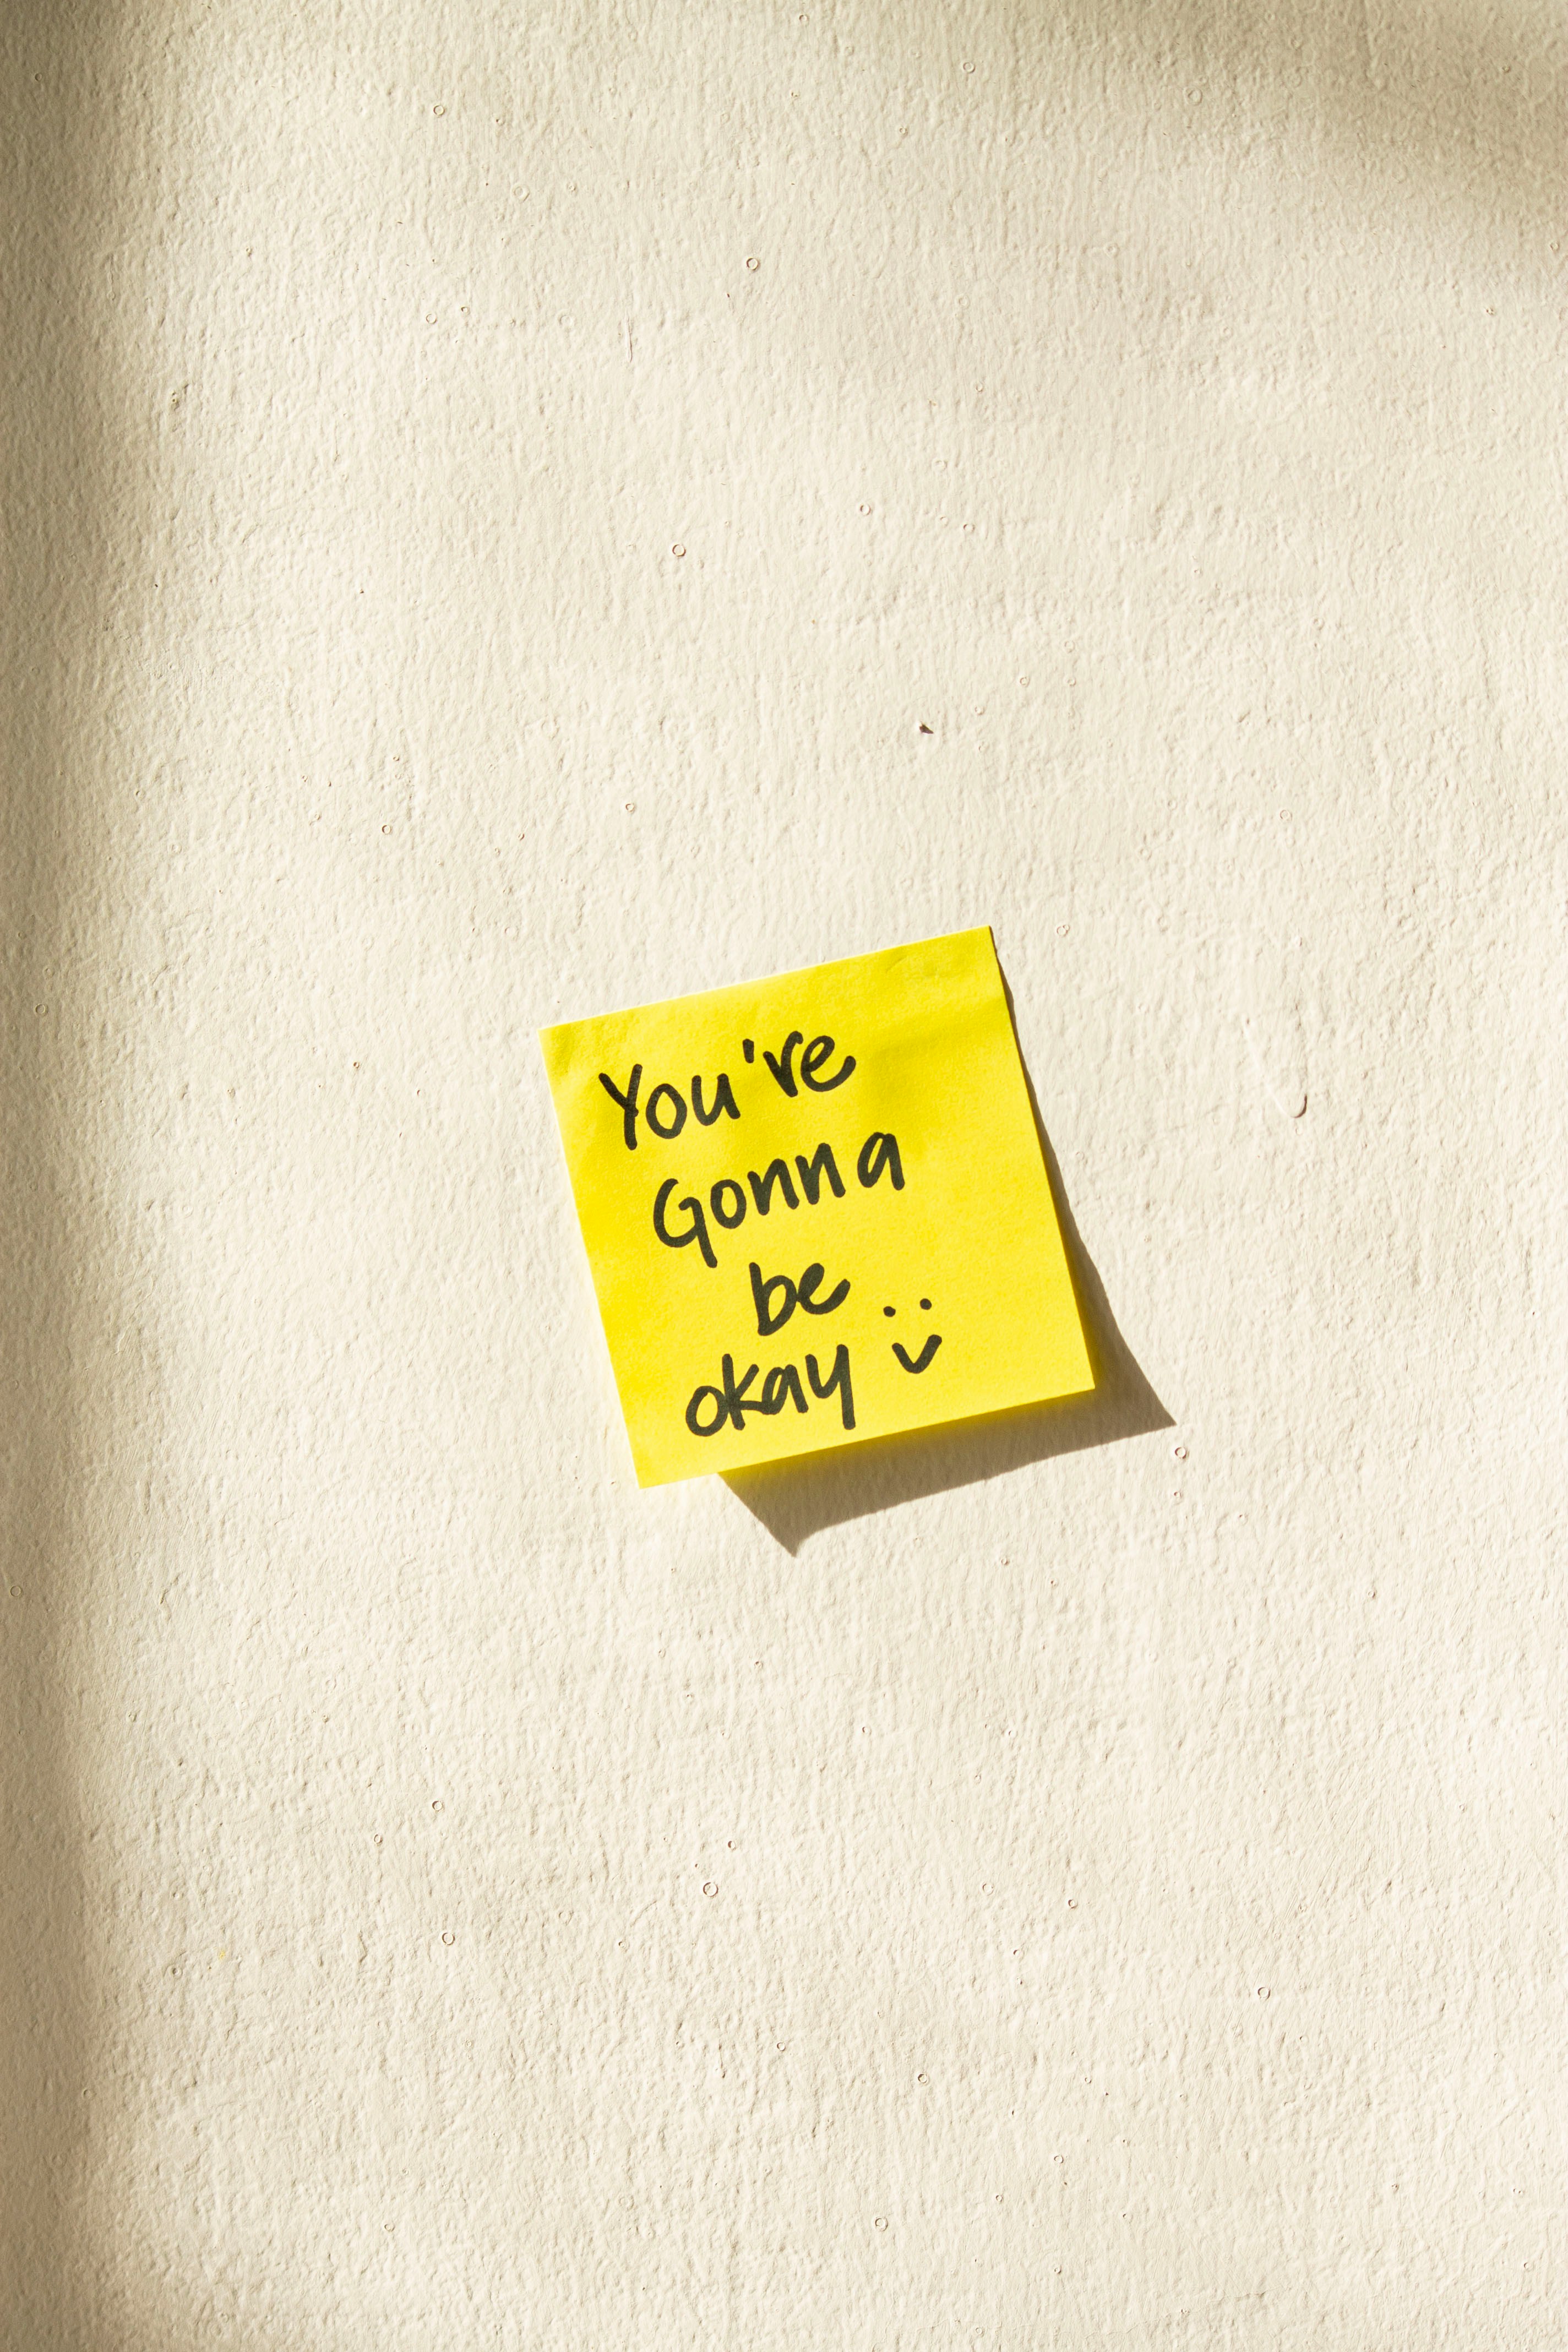 You're
Gonna
be
okay